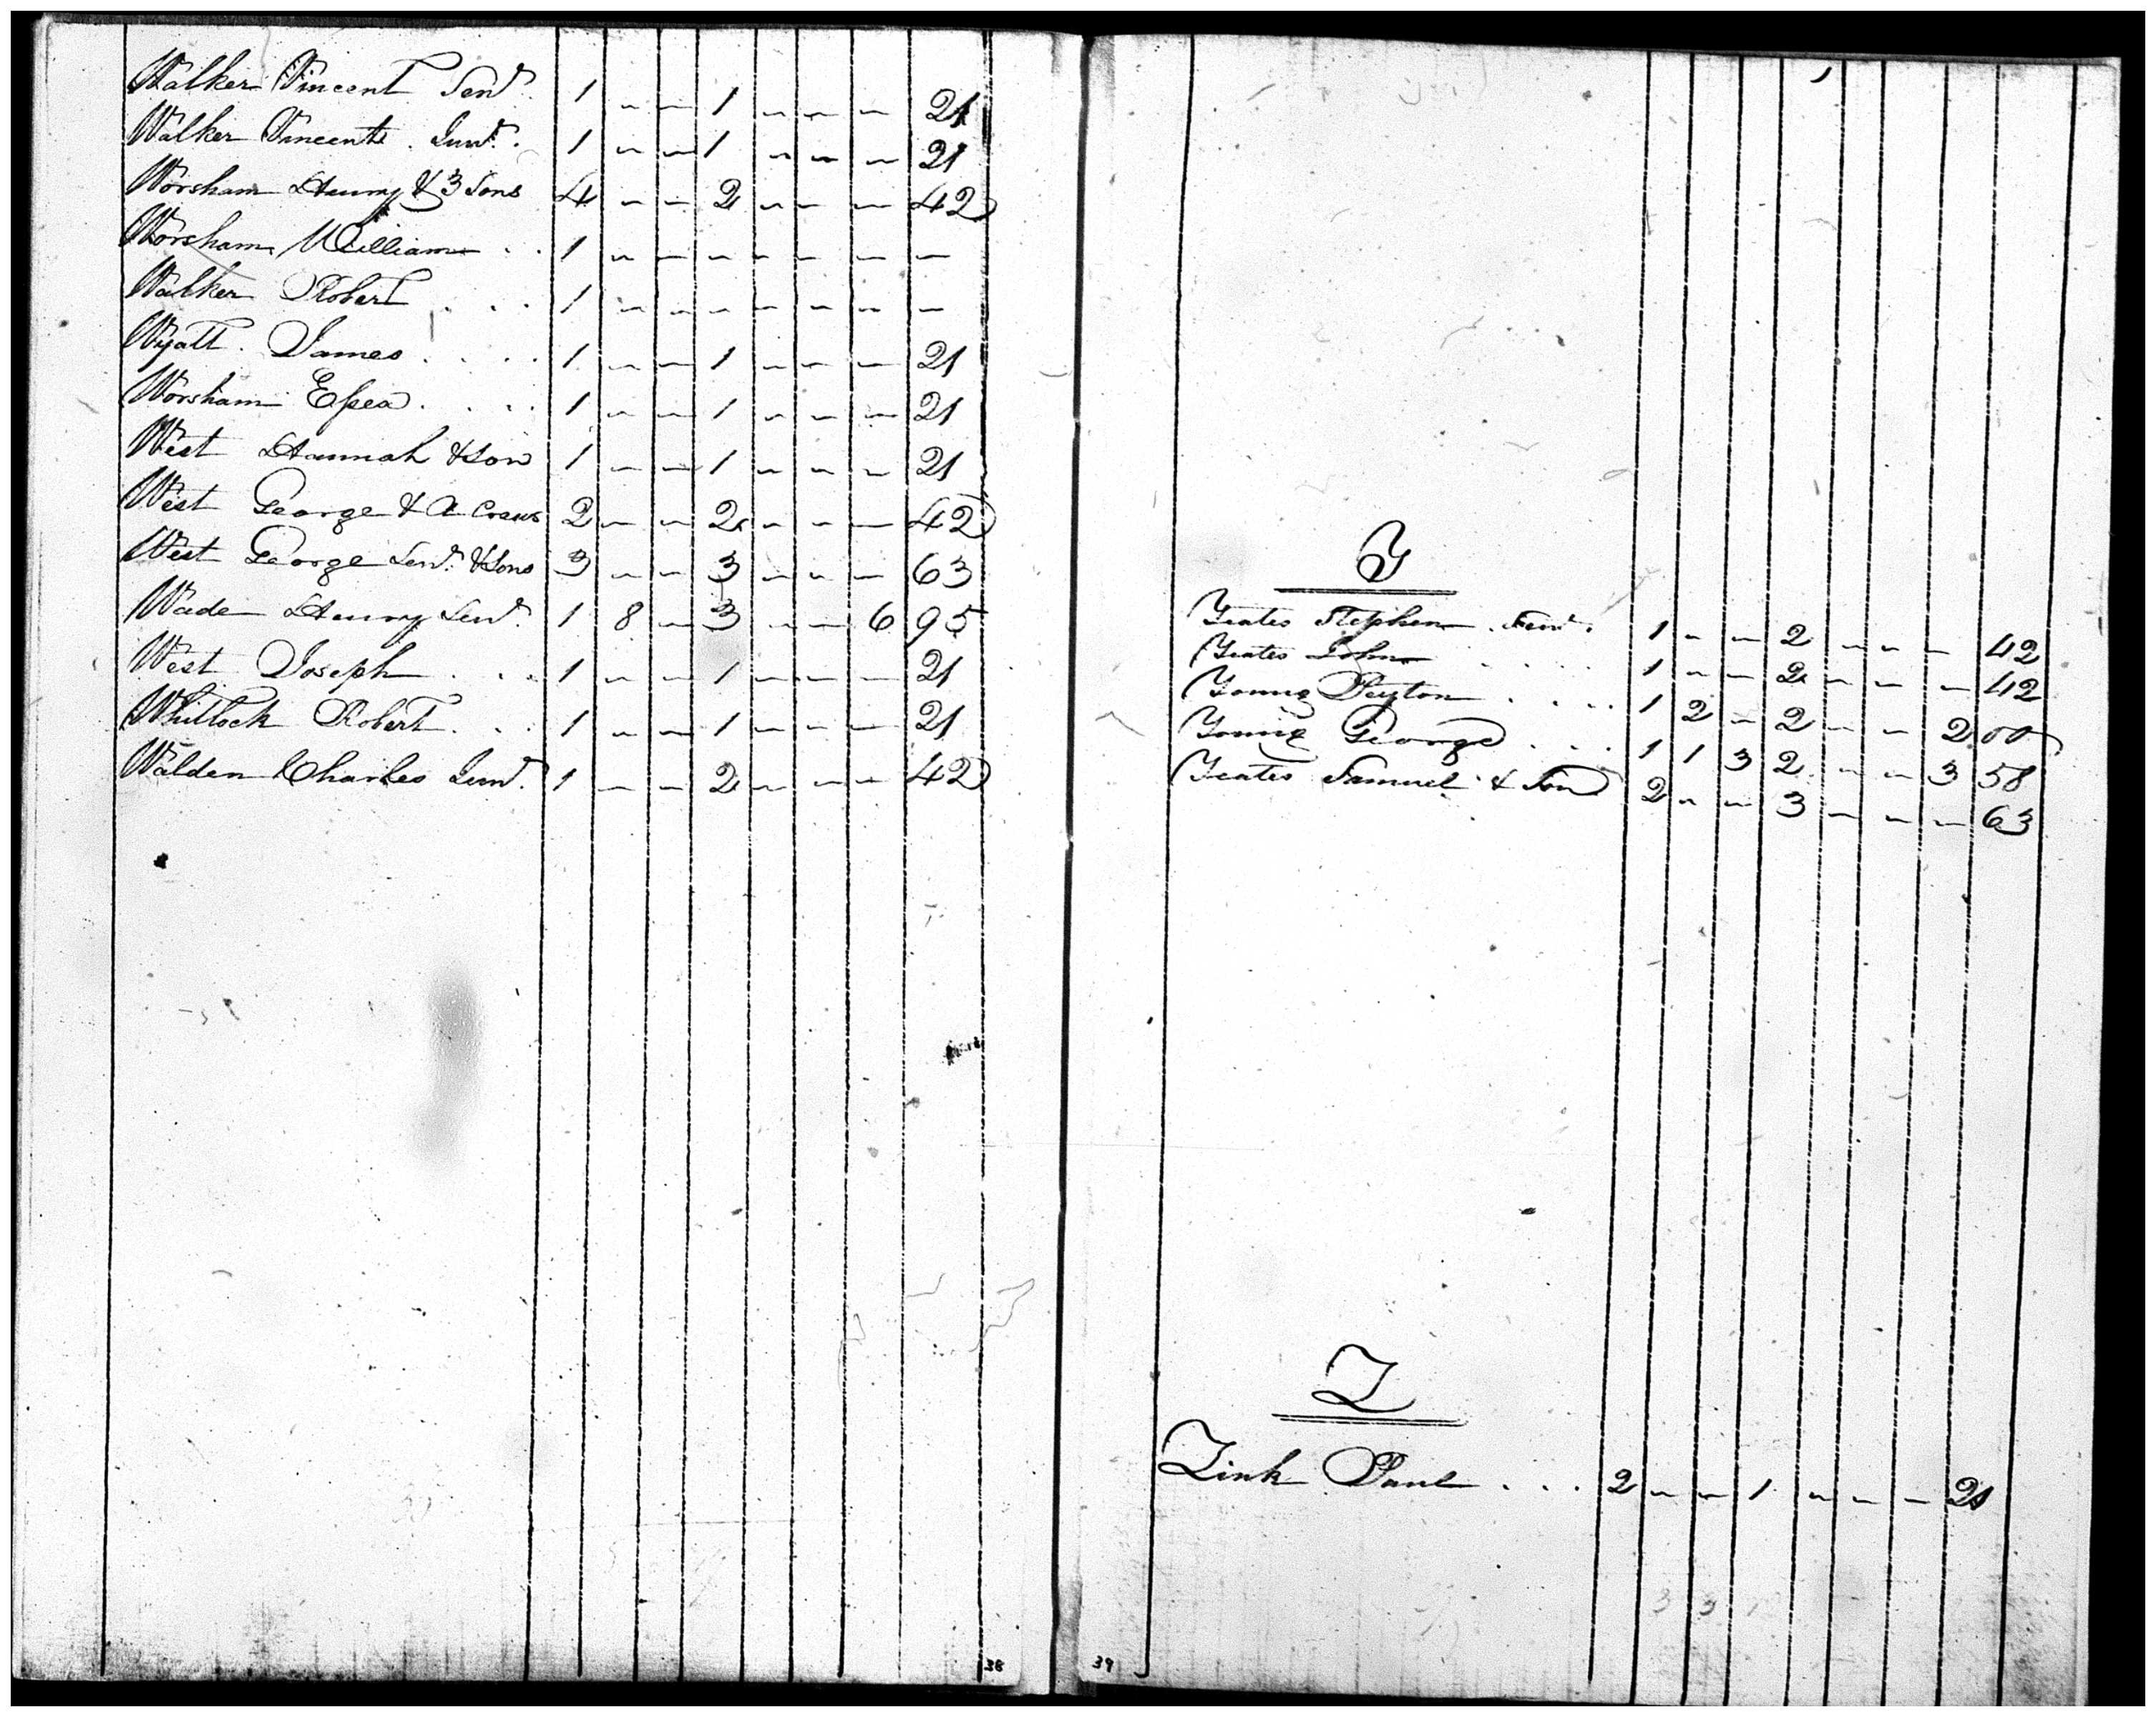 Walker Vincent Senr. 1 - - 1 - - - 21
Walker Vincent . Junr. 1 - - 1 - - - 21
Worsham Henry & 3 Sons 4 - - 2 - - - 42
Worsham William . . 1 - - - - - - -
Walker Robert . . . 1 - - - - - - -
Wyatt . James . . . . 1 - - 1 - - - 21
Worsham Essex . . . . 1 - - 1 - - - 21
West Hannah & Son 1 - - 1 - - - 21
West George & A 2 - - 2 - - - 42
West George Senr. & Sons 3 - - 3 - - - 63
Wade Henry Senr. 1 8 - 3 - - 6 95
West Joseph . . . 1 - - 1 - - - 21
Whitlock Robert . . . 1 - - 1 - - - 21
Walden Charles Junr. 1 - - 2 - - - 42
38
Y
Yeates Stephen Senr. 1 - - 2 - - - 42
Yeates John . . . . . 1 - - 2 - - - 42
Young Peyton . . . . 1 2 - 2 - - 2 00
Young George . . . 1 1 3 2 - - 3 58
Yeates Samuel & Son 2 - - 3 - - - 63
Z
Zink Paul . . . 2 - - 1 - - - 21
39